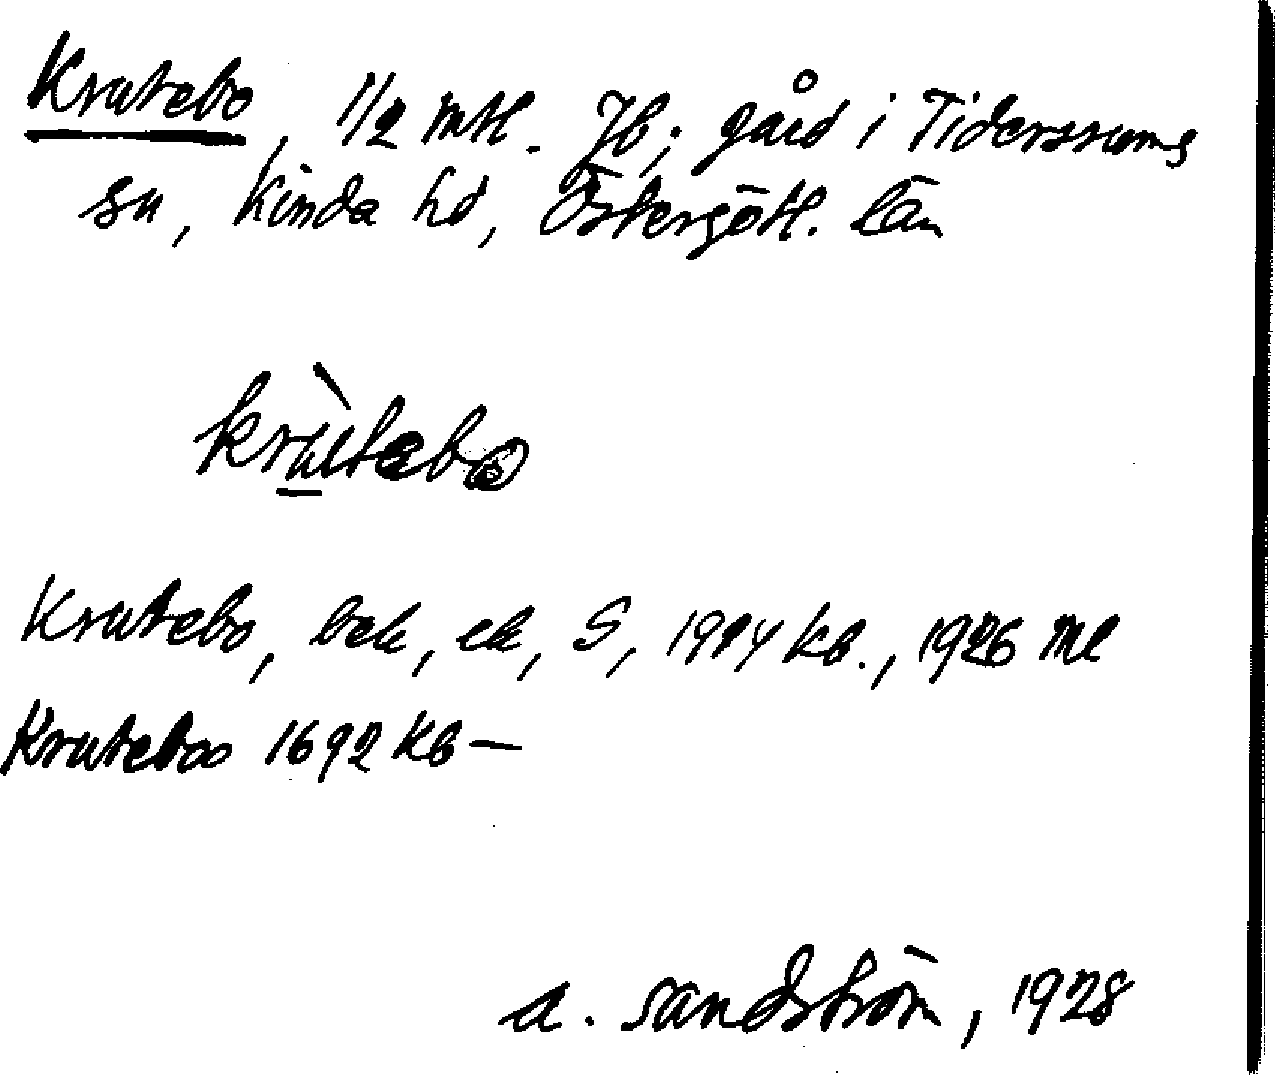 Krutebo, 1/2 mtl. Jb; gård i Tidersrums
sn, Kinda hd, Östergötl. län
krùtebo
Krutebo, bek, ek, S, 1924 kb., 1926 Ml
Kruteboo 1692 kb —
A. Sandström, 1928